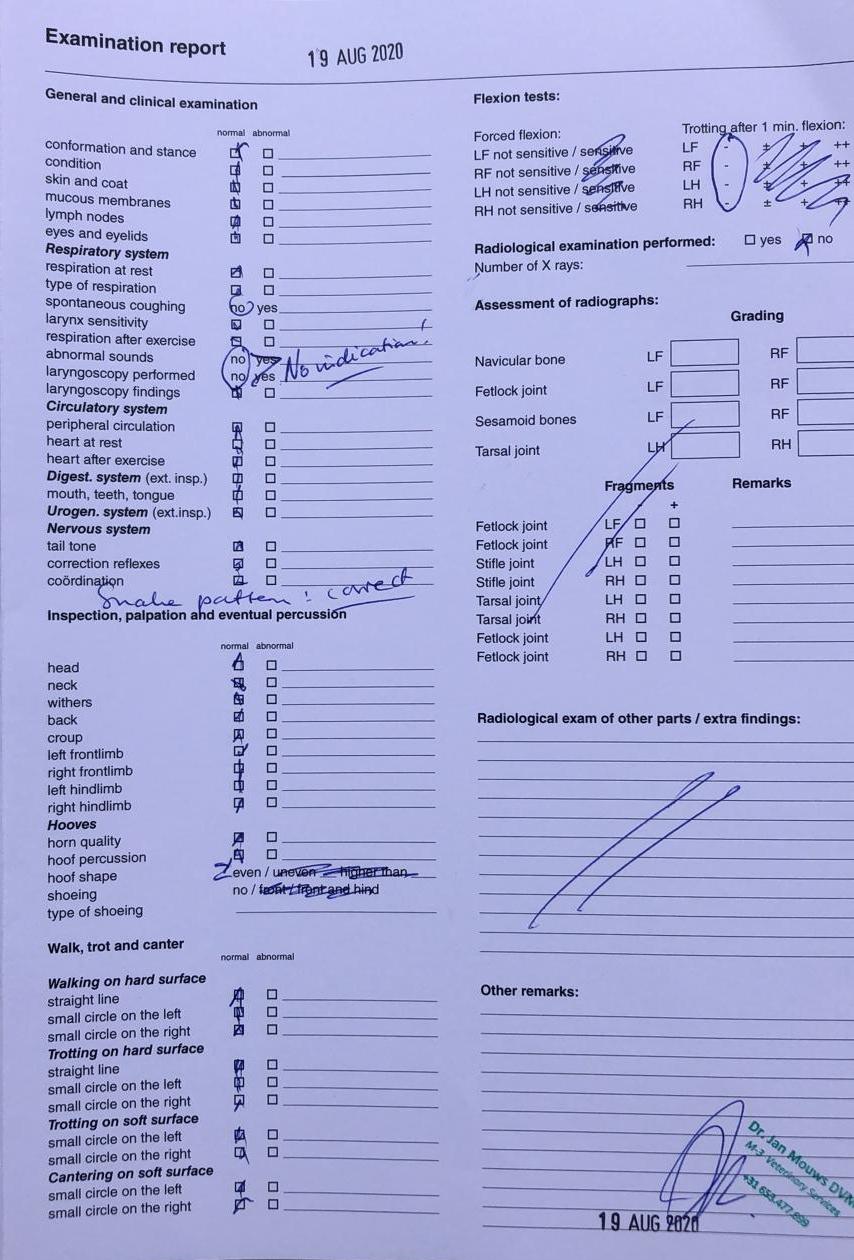 Examination report
19 AUG 2020
General and clinical examination
normal abnormal
conformation and stance
condition
skin and coat
mucous membranes
lymph nodes
eyes and eyelids
Respiratory system
respiration at rest
type of respiration
spontaneous coughing no yes
larynx sensitivity
respiration after exercise
abnormal sounds no yes
No indication!
laryngoscopy performed no yes
laryngoscopy findings
Circulatory system
peripheral circulation
heart at rest
heart after exercise
Digest. system (ext. insp.)
mouth, teeth, tongue
Urogen. system (ext.insp.)
Nervous system
tail tone
correction reflexes
coördination
Snake pattern : correct
Inspection, palpation and eventual percussion
normal abnormal
head
neck
withers
back
croup
left frontlimb
right frontlimb
left hindlimb
right hindlimb
Hooves
horn quality
hoof percussion
hoof shape even / uneven higher than
shoeing no / front / front and hind
type of shoeing
Walk, trot and canter
normal abnormal
Walking on hard surface
straight line
small circle on the left
small circle on the right
Trotting on hard surface
straight line
small circle on the left
small circle on the right
Trotting on soft surface
small circle on the left
small circle on the right
Cantering on soft surface
small circle on the left
small circle on the right
Flexion tests:
Forced flexion: Trotting after 1 min. flexion:
LF not sensitive / sensitive LF - ± + ++
RF not sensitive / sensitive RF - ± + ++
LH not sensitive / sensitive LH - ± + ++
RH not sensitive / sensitive RH - ± + ++
Radiological examination performed: yes no
Number of X rays:
Assessment of radiographs:
Grading
Navicular bone LF RF
Fetlock joint LF RF
Sesamoid bones LF RF
Tarsal joint LH RH
Fragments Remarks
- +
Fetlock joint LF
Fetlock joint RF
Stifle joint LH
Stifle joint RH
Tarsal joint LH
Tarsal joint RH
Fetlock joint LH
Fetlock joint RH
Radiological exam of other parts / extra findings:
Other remarks:
Dr. Jan Mouws DVM
M-3 Veterinary Services
+31 653.477.899
19 AUG 2020